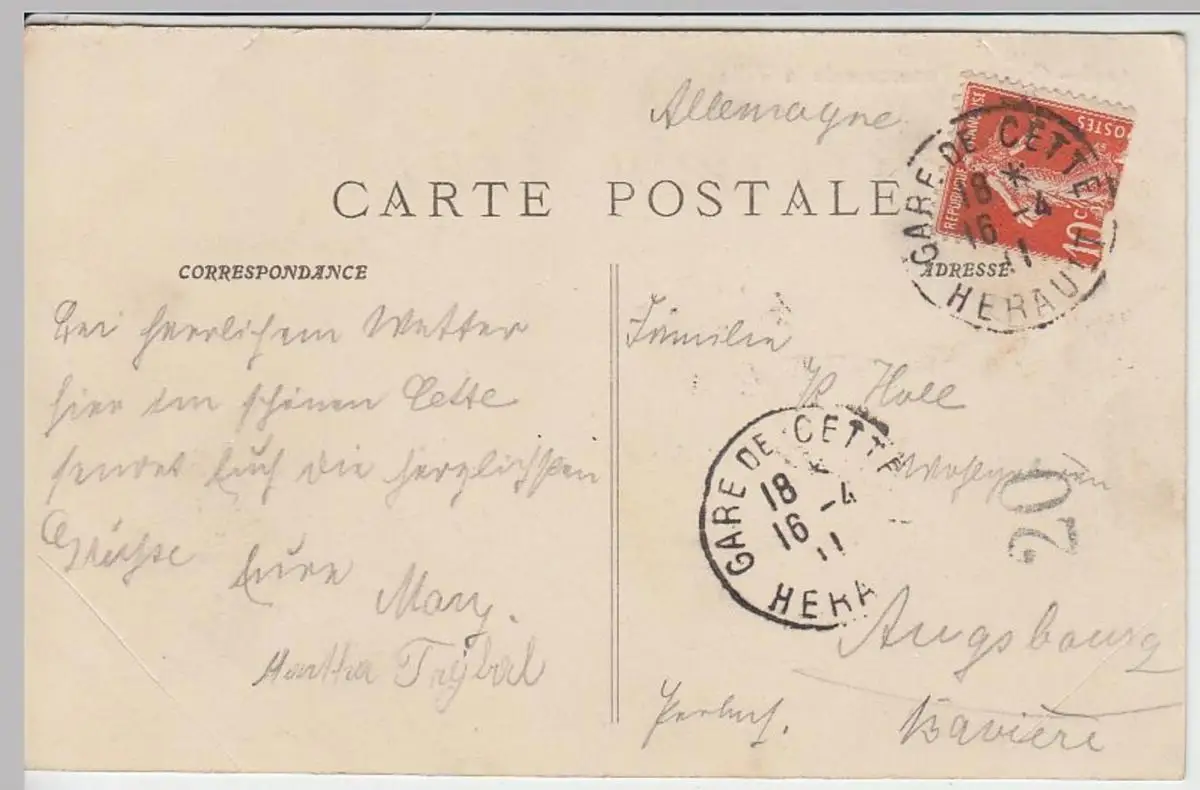 Allemagne
CARTE POSTALE
CORRESPONDANCE
ADRESSE
REPUBLIQUE FRANÇAISE
POSTES
10c
GARE DE CETTE
18 *
16 -4
11
HERAULT
Bei herrlichem Wetter
hier im schönen Cette
sendet Euch die herzlichsten
Grüsse
Eure
Mary.
Martha Trybal
Familie
Holl
Wohlgeboren
GARE DE CETTE
18 *
16 -4
11
HERA
20
Augsbourg
Bavière